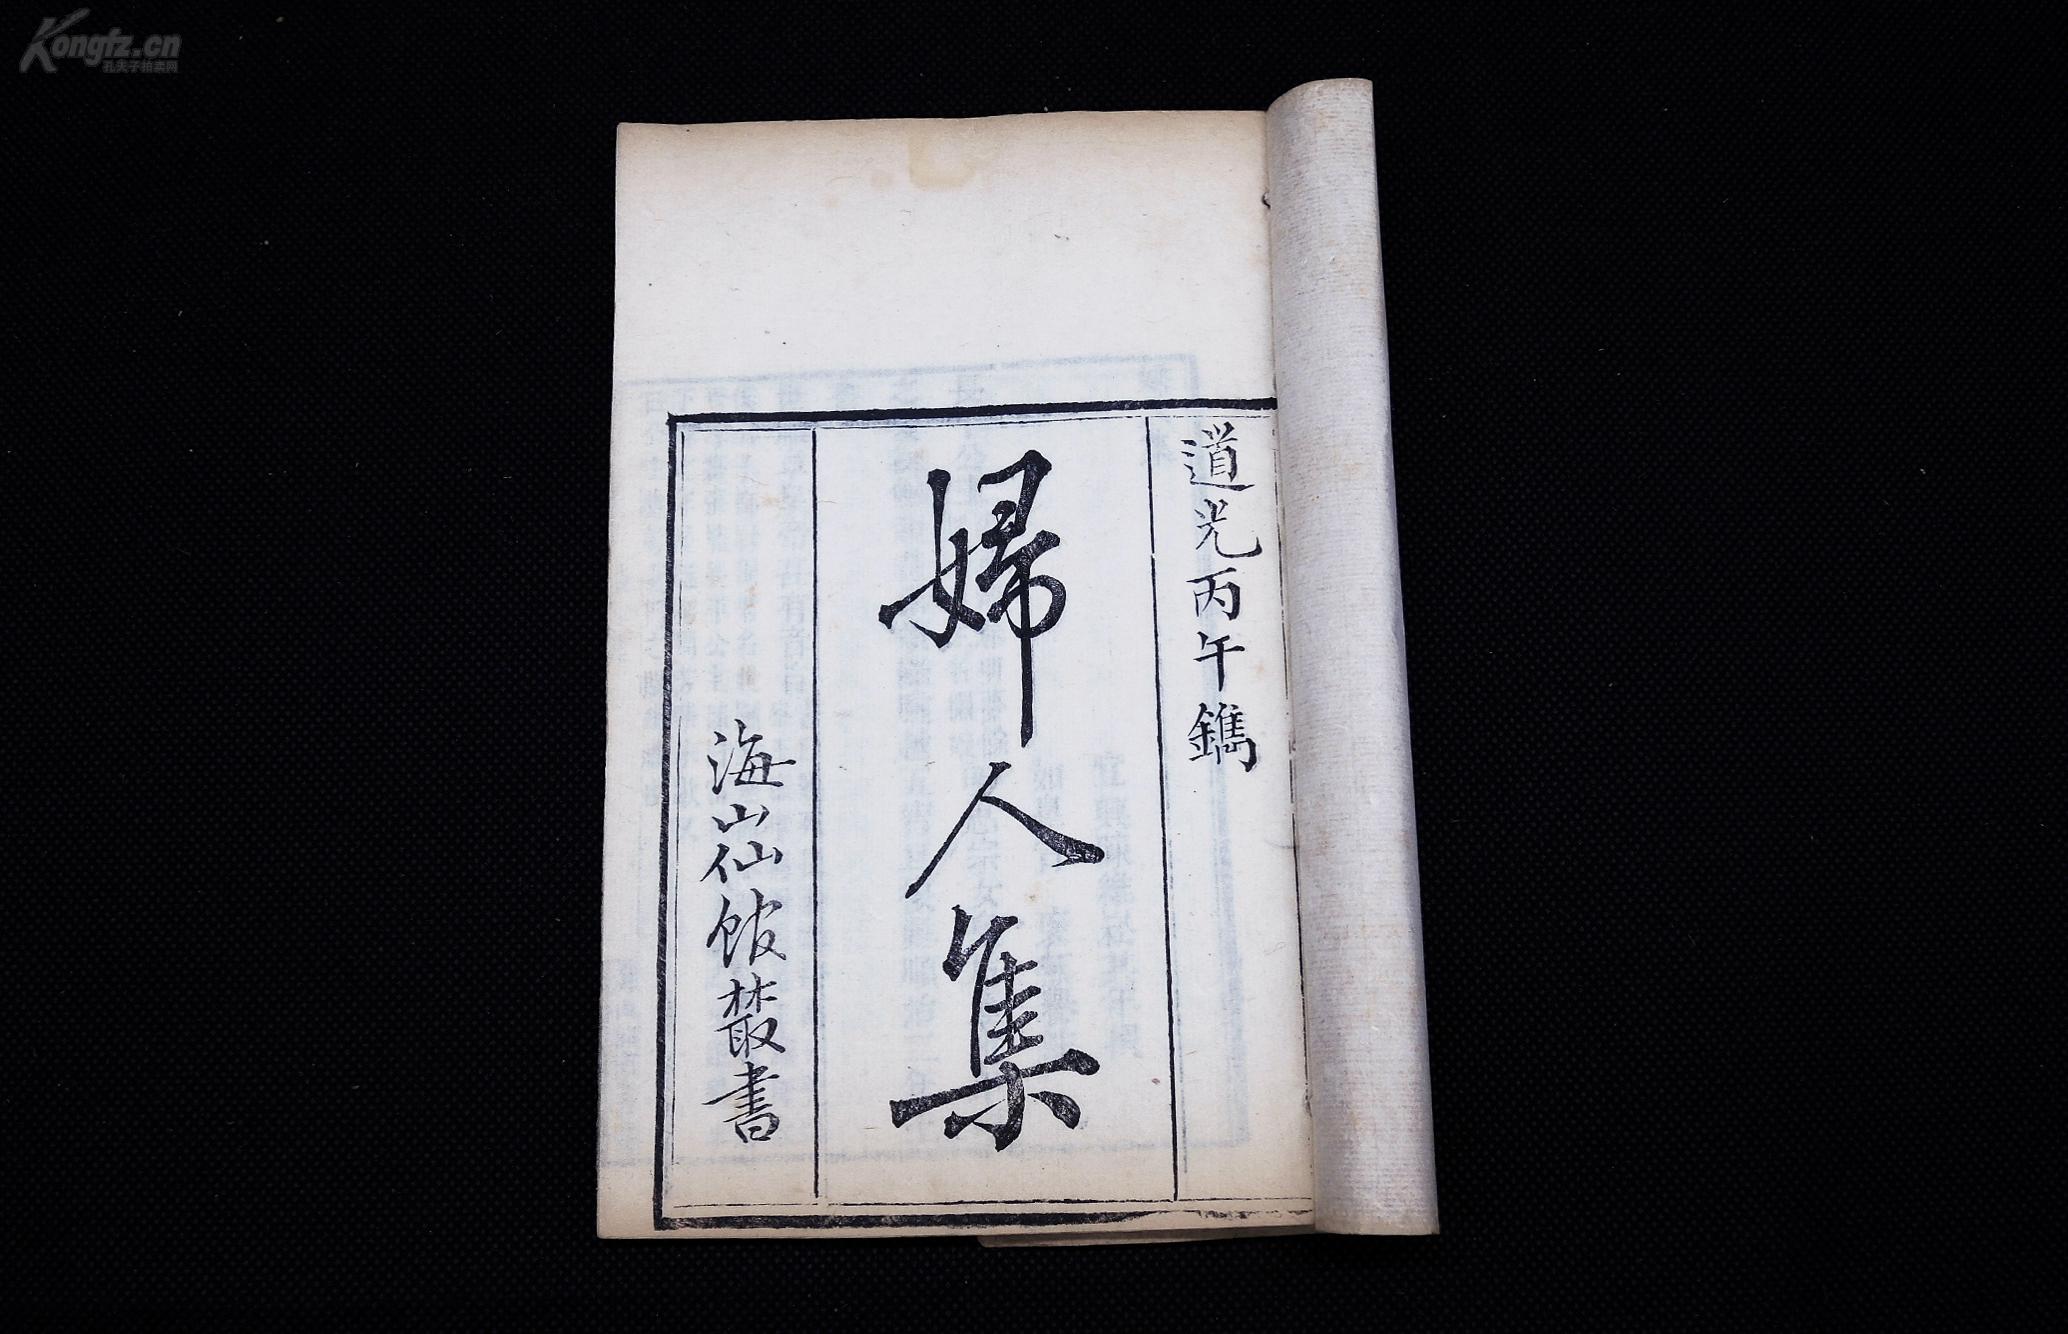 Kongfz.cn
孔夫子拍卖网
道光丙午鐫
婦人集
海山仙館叢書